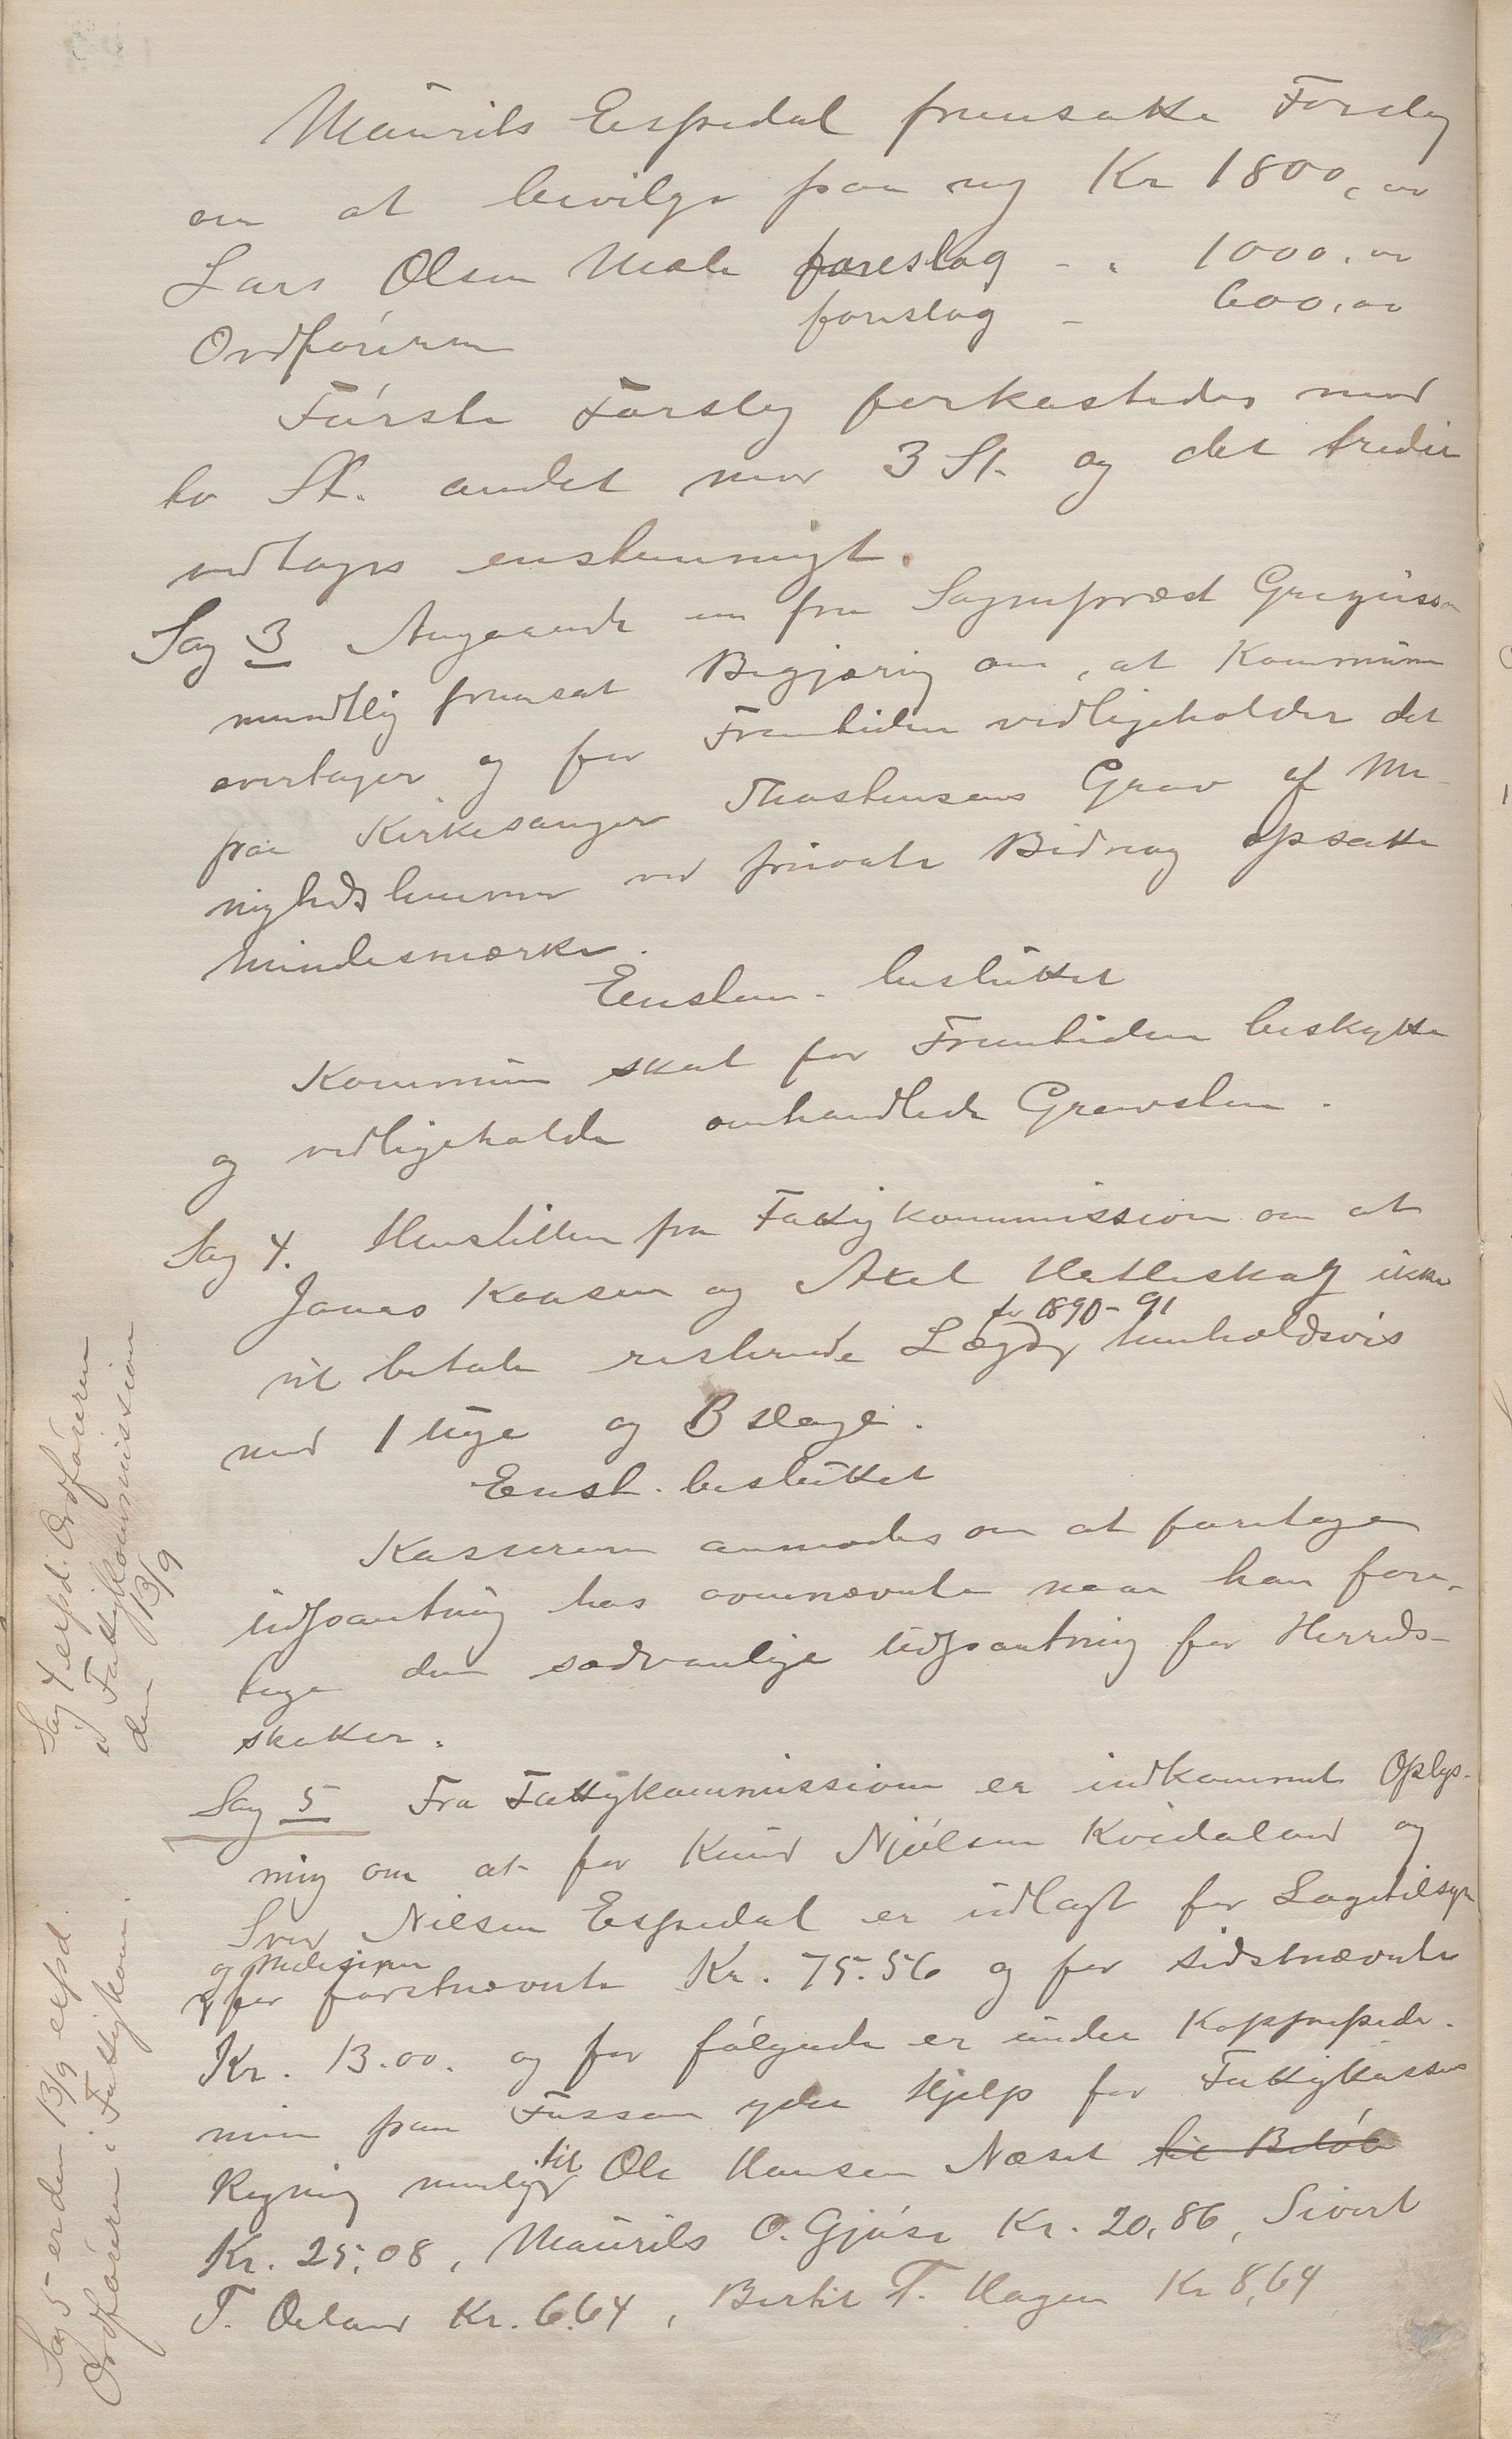 Maurits Espedal fremsatte Forslag
om at bevilge paa ny Kr 1800,00
Lars Olsen Mæle foreslog - " 1000.00
Ordføreren foreslog - 600,00
Første Forslag forkastedes mod
to St. andet mod 3 St. og det tredie
vedtages enstemmigt.
Sag 3 Angaaende en fra Sognepræst Gregussen
mundtlig fremsat Begjæring om, at Kommunen
overtager og for Fremtiden vedligeholder det
paa Kirkesanger Thorstensens Grav af Me-
nighedslemmer ved private Bidrag opsatte
Mindesmærke.
Enstem. besluttet
Kommunen skal for Fremtiden beskytte
og vedligeholde omhandlede Gravsten.
Sag 4. Henstillen fra Fattigkommissionen om at
Jonas Kaasen og Axel Hetleskog ikke
vil betale resterende Lægd for 1890-91 henholdsvis
med 1 Uge og 3 Dage.
Enst. besluttet
Kassereren anmodes om at foretage
Udpantning hos ovennævnte naar han fore-
tage den sædvanlige Udpantning for Herreds-
skatter.
Sag 5 Fra Fattigkommissionen er indkommet Oplys-
ning om at for Knud Njølsen Kvidaland og
Sven Nilsen Espedal er udlagt for Lægetilsyn
og Medesiner
for førstnævnte Kr. 75.56 og for sidstnævnte
Kr. 13.00. og for følgende er under Koppeepede-
mien paa Fossan ydet Hjelp for Fattigkassens
Regning nemlig til Ole Hansen Næset til Beløb
Kr. 25,08, Maurits O. Gjøse Kr. 20,86, Sivert
T. Østand Kr. 6.64, Bertil T. Hagen Kr 8,64
Sag 4 exp d. Ordføreren
i Fattigkommission
den 13/9
Sag 5 er den 13/9 expd.
Ordføreren i Fattigkom.